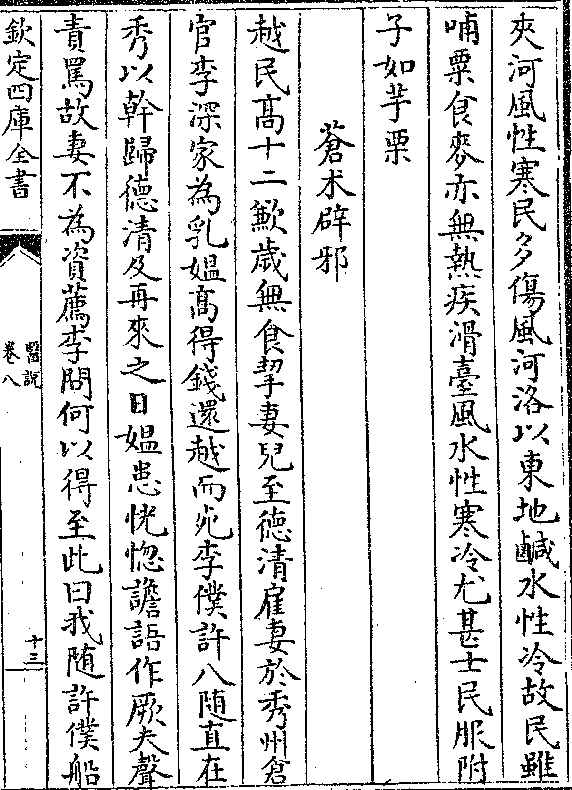 夾河風性寒民多傷風河洛以東地鹹水性冷故民雖
哺粟食麥亦無熱疾滑臺風水性寒冷尤甚士民服附
子如芋栗
蒼术辟邪
越民高十二歉歲無食挈妻兒至德清雇妻於秀州倉
官李深家為乳媪高得錢還越而死李僕許八隨直在
秀以幹歸德清及再來之日媪患恍惚譫語作厥夫聲
責罵故妻不為資薦李問何以得至此曰我隨許僕船
欽定四庫全書
醫説
卷八
十三